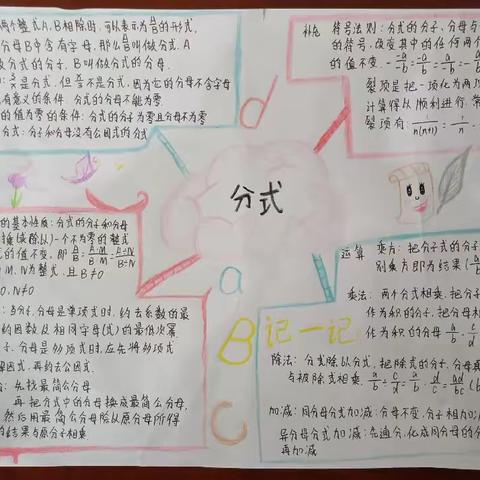 两个整式A、B相除时,可以表示为A/B的形式,
分母B中含有字母,那么A/B叫做分式.A
做分式的分子,B叫做分式的分母.
不是分式,但 不是分式,因为它的分母不含字母
有意义的条件:分式的分母不能为零
的值为零的条件:分式的分子为零且分母不为零
分式:分子和分母没有公因式的分式
补充 符号法则:分式的分子、分母与
的符号,改变其中的任何两个
的值不变.
裂项是把一项化为两项
计算得以顺利进行,常
裂项有: 1/n(n+1) = 1/n -
d
分式
的基本性质:分式的分子和分母
乘(或除以)一个不为零的整式
的值不变,即 A/B=A·M/B·M, A÷N/B÷N
M、N为整式,且B≠0
0,N≠0
a
B
C
记一记
运算 乘方:把分子式的分子
别乘方即为结果
乘法:两个分式相乘,把分子
作为积的分子,把分母相
作为积的分母 a/b·c/d
除法:分式除以分式,把除式的分子、分母
与被除式相乘. a/b÷c/d=a/b·d/c=ad/bc (b
加减:同分母分式加减:分母不变,分子相加
异分母分式加减:先通分,化成同分母的分
再加减
:与分子、分母是单项式时,约去系数的最
约因数及相同字母(式)的最低次幂
子、分母是多项式时,应先将多项式
解因式,再约去公因式.
先找最简公分母
再把分式中的分母换成最简公分母,
然后用最简公分母除以原分母所得
的结果与原分子相乘